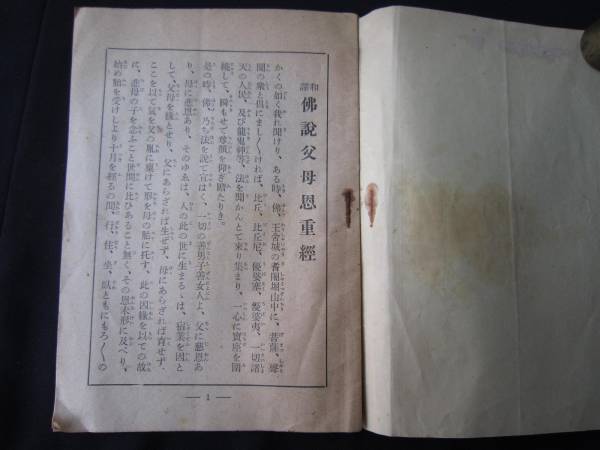 和譯 佛說父母恩重經
かくの如く我れ聞けり、ある時、佛、王舍城の耆闍堀山中に、菩薩、聲
聞の衆と俱にましく／＼ければ、比丘、比丘尼、優婆塞、優婆夷、一切諸
天の人民、及び龍鬼神等、法を聞かんとて來り集まり、一心に寶座を圍
繞して、瞬もせで尊顏を仰ぎ瞻たりき。
是の時、佛、乃ち法を說て宣はく、一切の善男子善女人よ、父に慈恩あ
り、母に悲恩あり、そのゆゑは、人の此の世に生まるゝは、宿業を因と
して、父母を緣とせり、父にあらざれば生ぜず、母にあらざれば育せず、
ここを以て氣を父の胤に稟けて形を母の胎に托す、此の因緣を以ての故
に、悲母の子を念ふこと世間に比ひあること無く、その恩未形に及べり、
始め胎を受けしより十月を經るの間、行、住、坐、臥ともにもろ／＼の
— 1 —